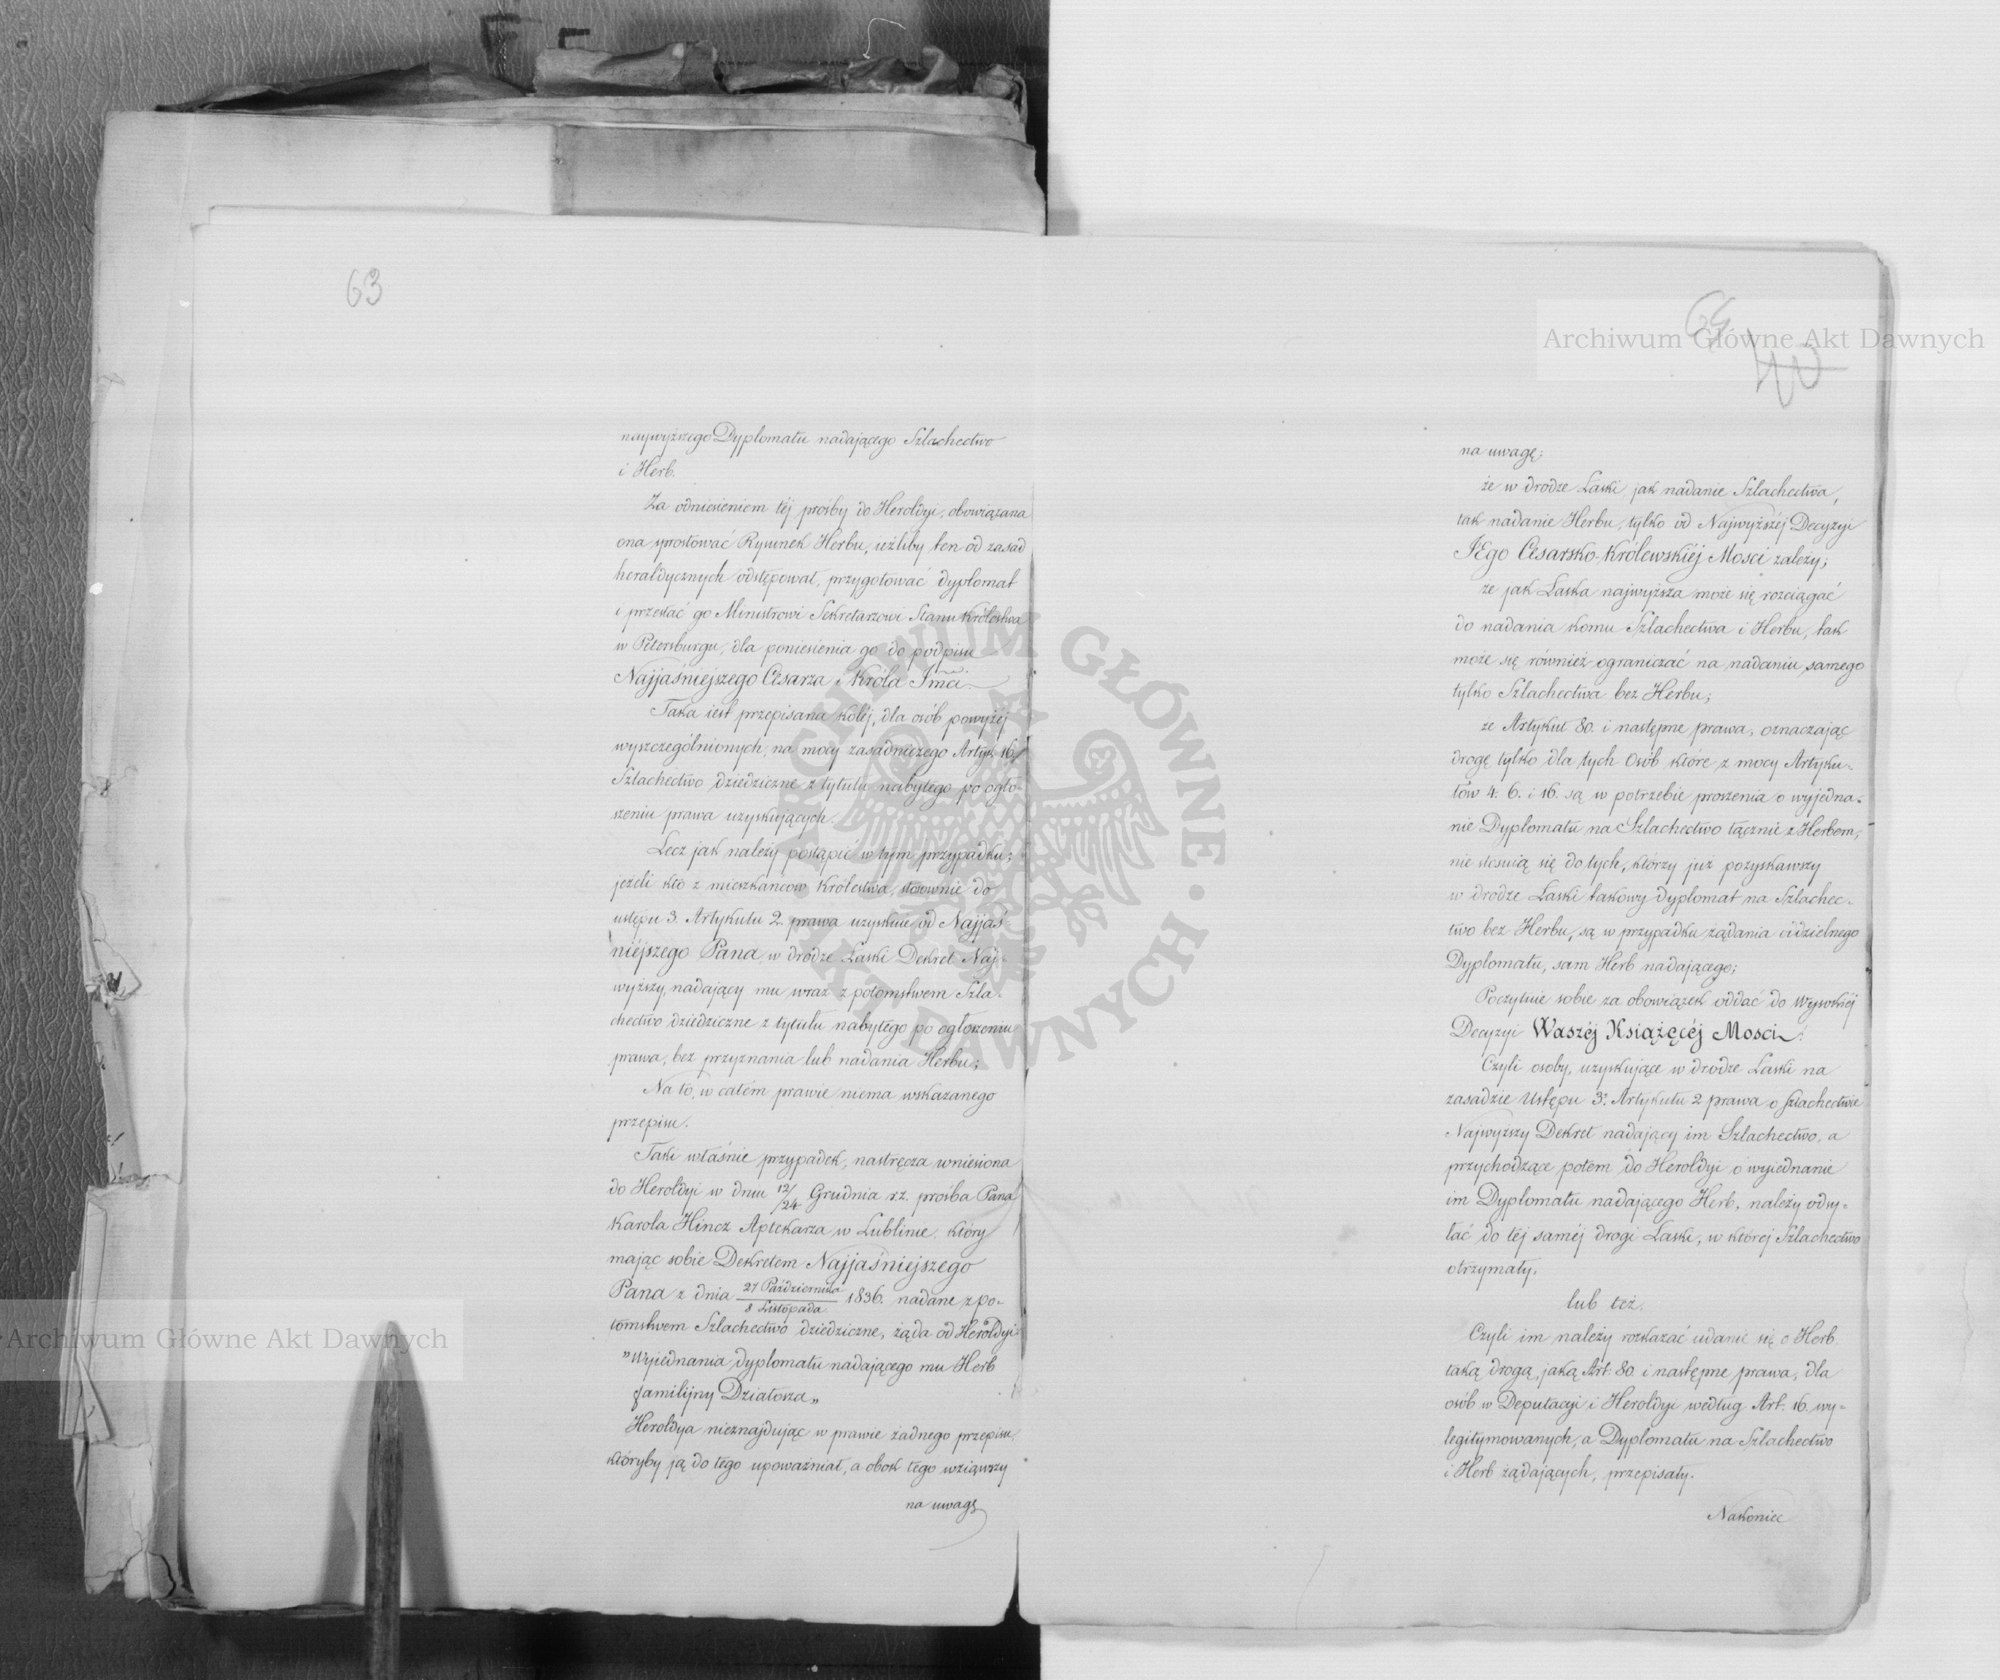 63
najwyższego Dyplomatu nadającego Szlachectwo
i Herb.
Za odniesieniem téj prośby do Heroldyi, obowiązana
ona sprostować Rysunek Herbu, ieżliby ten od zasad
heraldycznych odstępował, przygotować dyplomat
i przesłać go Ministrowi Sekretarzowi Stanu Królestwa
w Petersburgu, dla poniesienia go do podpisu
Najjaśniejszego Cesarza i Króla Jmci
Taka iest przepisana koléj, dla osób powyżej
wyszczególnionych, na mocy zasadniczego Artyk: 16,
Szlachectwo dziedziczne z tytułu nabytego po ogło-
szeniu prawa uzyskujących.
Lecz jak należy postąpić w tym przypadku;
jeżeli kto z mieszkańców Królestwa, stosownie do
ustępu 3. Artykułu 2. prawa uzyskuie od Najjaś-
niéjszego Pana, w drodze Łaski Dekret Naj-
wyższy, nadający mu wraz z potomstwem Szla-
chectwo dziedziczne z tytułu nabytego po ogłoszeniu
prawa, bez przyznania lub nadania Herbu;
Na to, w całém prawie niema wskazanego
przepisu.
Taki właśnie przypadek, nastręcza wniesiona
do Heroldyi w dniu 12/24 Grudnia r.z. prośba Pana
Karola Hincz Aptekarza w Lublinie, który
mając sobie Dekretem Najjaśniejszego
Pana z dnia 27 Października / 8 Listopada 1836. nadane z po-
tomstwem Szlachectwo dziedziczne, żąda od Heroldyi:
"Wyiednania dyplomatu nadającego mu Herb
familijny Działosza"
Heroldya nieznajdując w prawie żadnego przepisu,
któryby ją do tego upoważniał, a obok tego wziąwszy
na uwagę
64
40
na uwagę;
że w drodze Łaski, jak nadanie Szlachectwa,
tak nadanie Herbu, tylko od Najwyższéj Decyzyi
JEgo Cesarsko-Królewskiéj Mości zależy;
że jak Łaska najwyższa może się rozciągać
do nadania komu Szlachectwa i Herbu, tak
może się również ograniczać na nadaniu samego
tylko Szlachectwa bez Herbu;
że Artykuł 80. i następne prawa, oznaczając
drogę tylko dla tych Osób które z mocy Artyku-
łów 4. 6. i 16. są w potrzebie proszenia o wyjedna-
nie Dyplomatu na Szlachectwo łącznie z Herbem,
nie stosuią się do tych, którzy już pozyskawszy
w drodze Łaski takowy dyplomat na Szlachec-
two bez Herbu, są w przypadku żądania oddzielnego
Dyplomatu, sam Herb nadającego;
Poczytuie sobie za obowiązek oddać do Wysokiéj
Decyzyi Waszéj Książęcéj Mości:
Czyli osoby, uzyskujące w drodze Łaski na
zasadzie Ustępu 3º Artykułu 2 prawa o Szlachectwie
Najwyższy Dekret nadający im Szlachectwo, a
przychodzące potem do Heroldyi o wyiednanie
im Dyplomatu nadającego Herb, należy odsy-
łać do téj saméj drogi Łaski, w któréj Szlachectwo
otrzymały.
lub téż.
Czyli im należy rozkazać udanie się o Herb
taką drogą, jaką Art: 80. i następne prawa, dla
osób w Deputacyi i Heroldyi według Art. 16. wy-
legitymowanych, a Dyplomatu na Szlachectwo
i Herb żądających, przepisały.
Nakoniec
Archiwum Główne Akt Dawnych
Archiwum Główne Akt Dawnych
ARCHIWUM GŁÓWNE AKT DAWNYCH